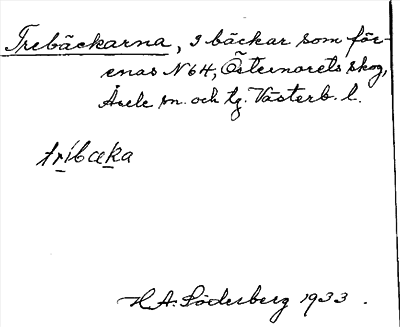 Trebäckarna, 3 bäckar som för-
enas N 64, Östernorets skog,
Åsele sn. och tg. Västerb. l.
tríbæka
H.A. Söderberg 1933.